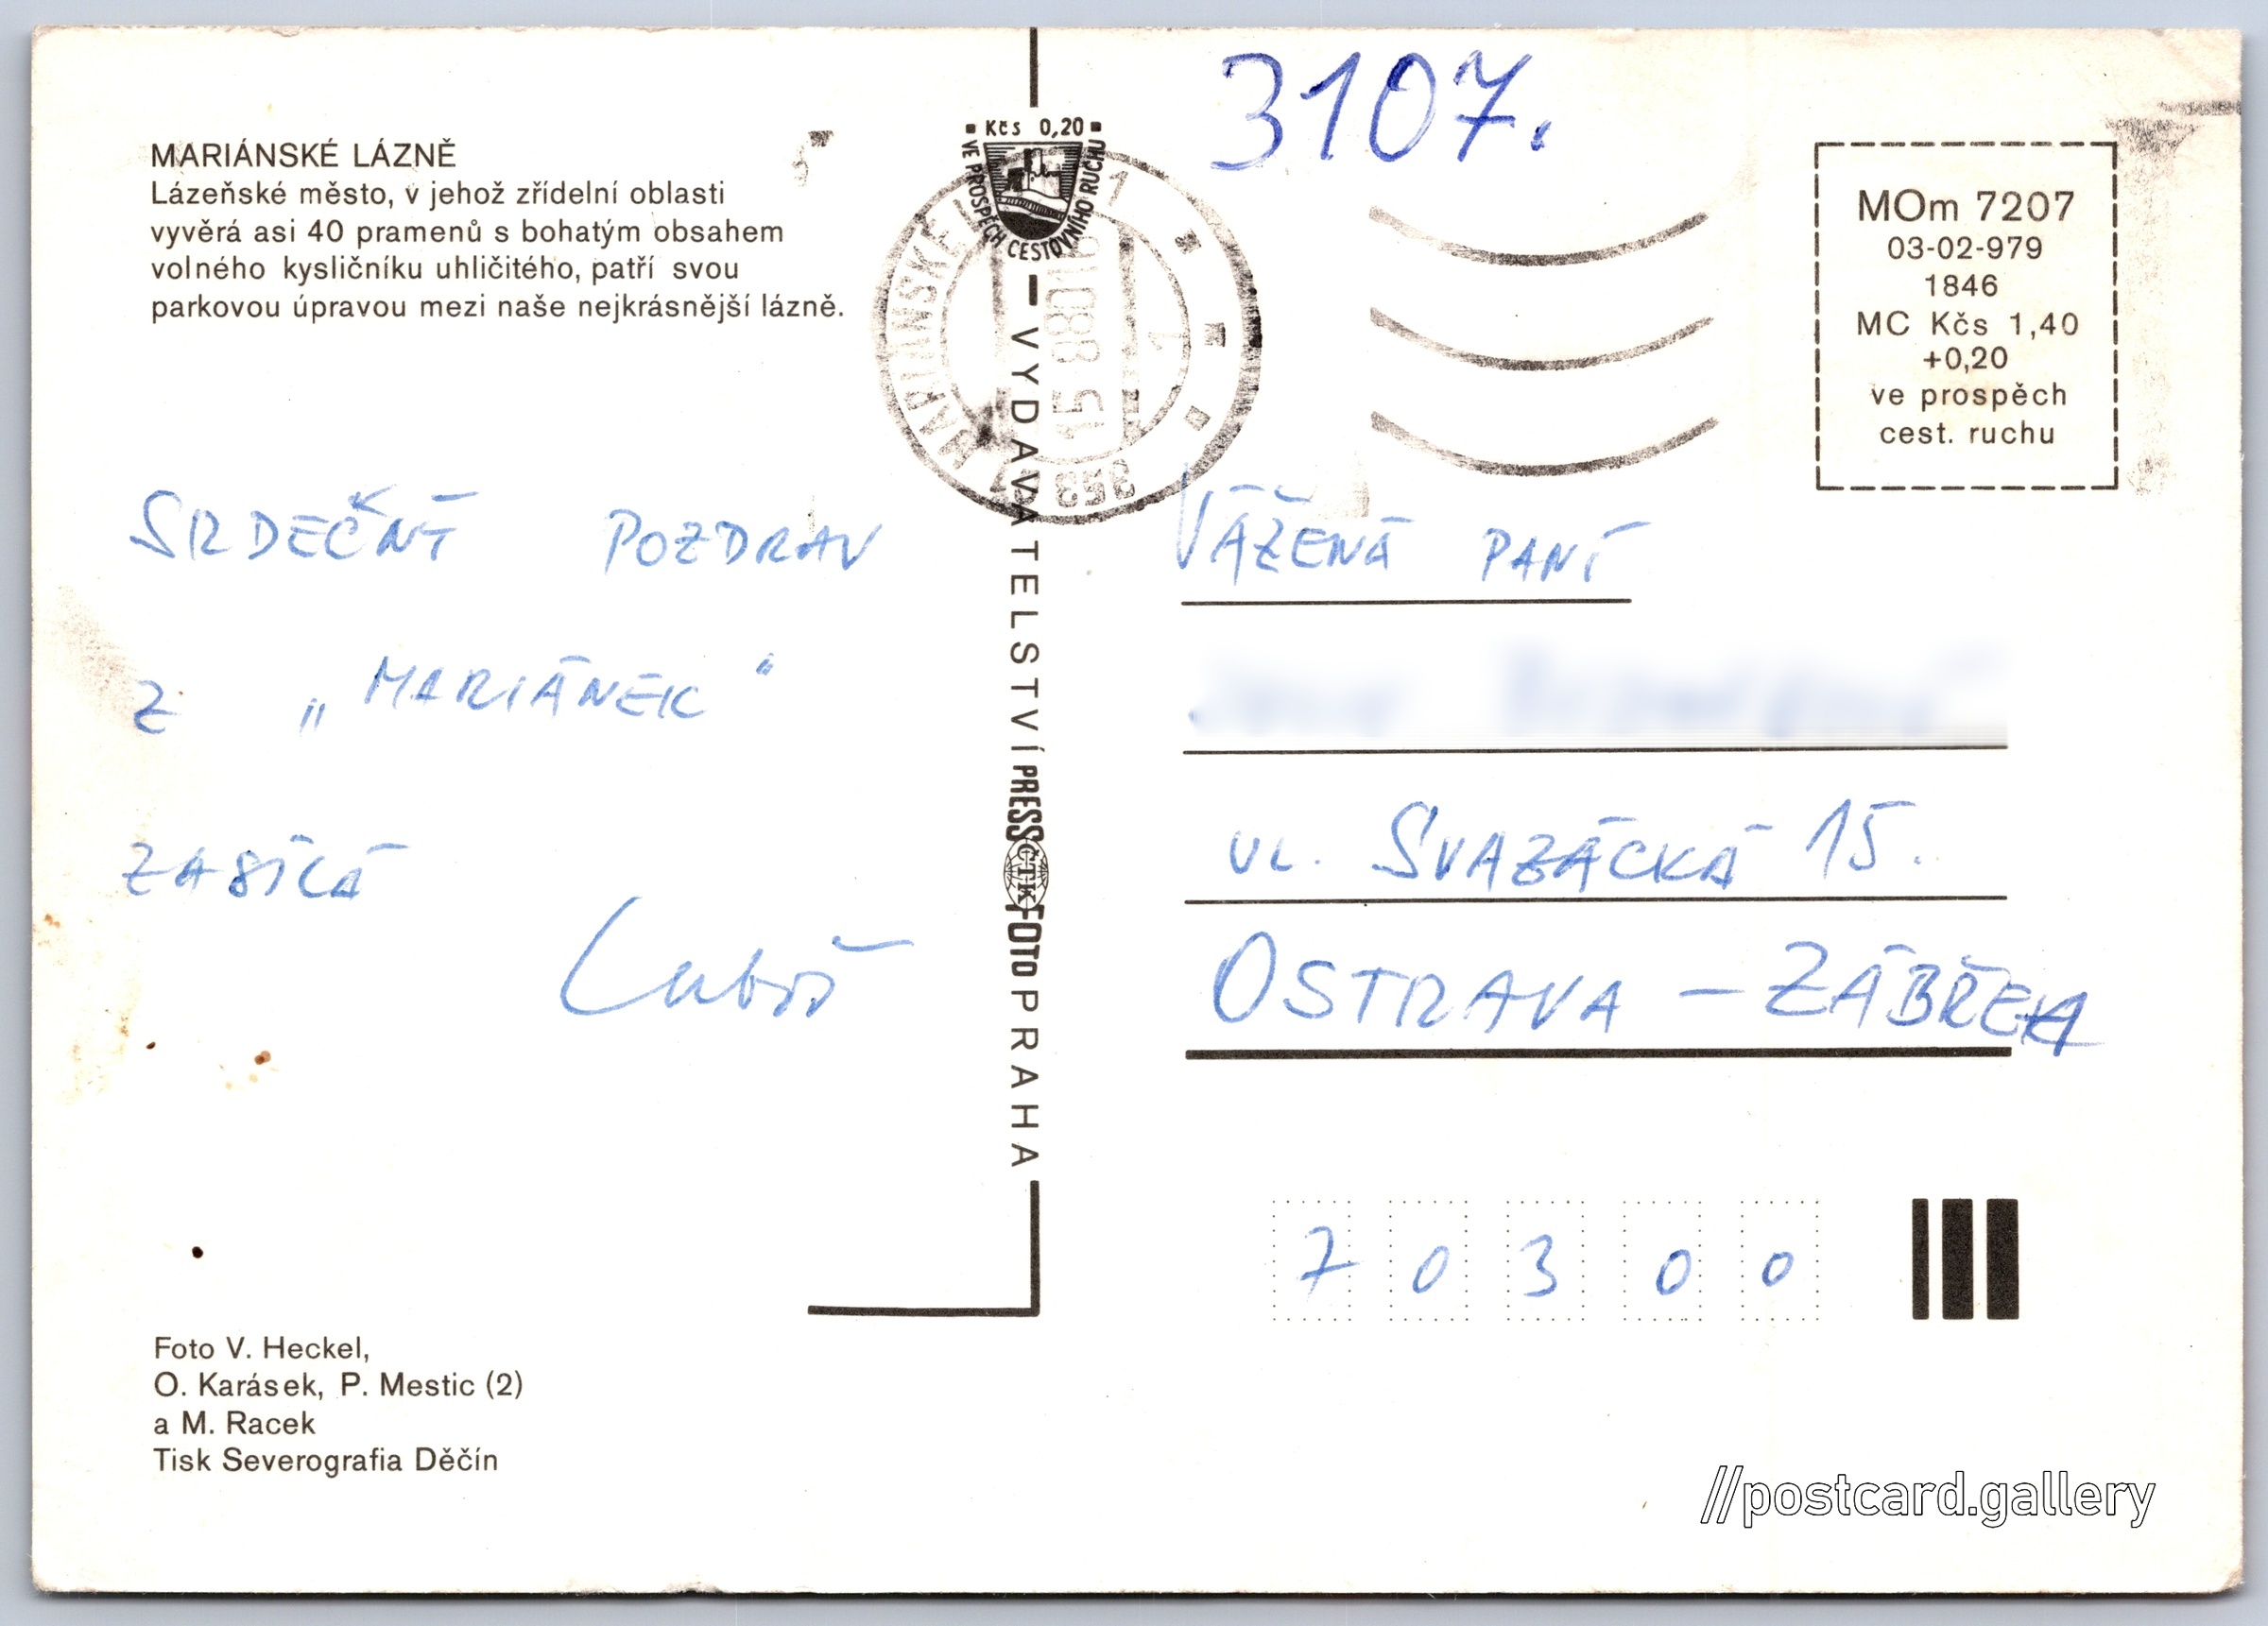 MARIÁNSKÉ LÁZNĚ
Lázeňské město, v jehož zřídelní oblasti
vyvěrá asi 40 pramenů s bohatým obsahem
volného kysličníku uhličitého, patří svou
parkovou úpravou mezi naše nejkrásnější lázně.
SRDEČNÝ POZDRAV
Z „MARIÁNEK“
ZASÍLÁ
Luboš
Foto V. Heckel,
O. Karásek, P. Mestic (2)
a M. Racek
Tisk Severografia Děčín
Kčs 0,20
VE PROSPĚCH CESTOVNÍHO RUCHU
VYDAVATELSTVÍ PRESSČTKFOTO PRAHA
MARIÁNSKÉ
353
3107.
MOm 7207
03-02-979
1846
MC Kčs 1,40
+0,20
ve prospěch
cest. ruchu
VÁŽENÁ PANÍ
UL. SVAZÁCKÁ 15.
OSTRAVA – ZÁBŘEH
70300
//postcard.gallery